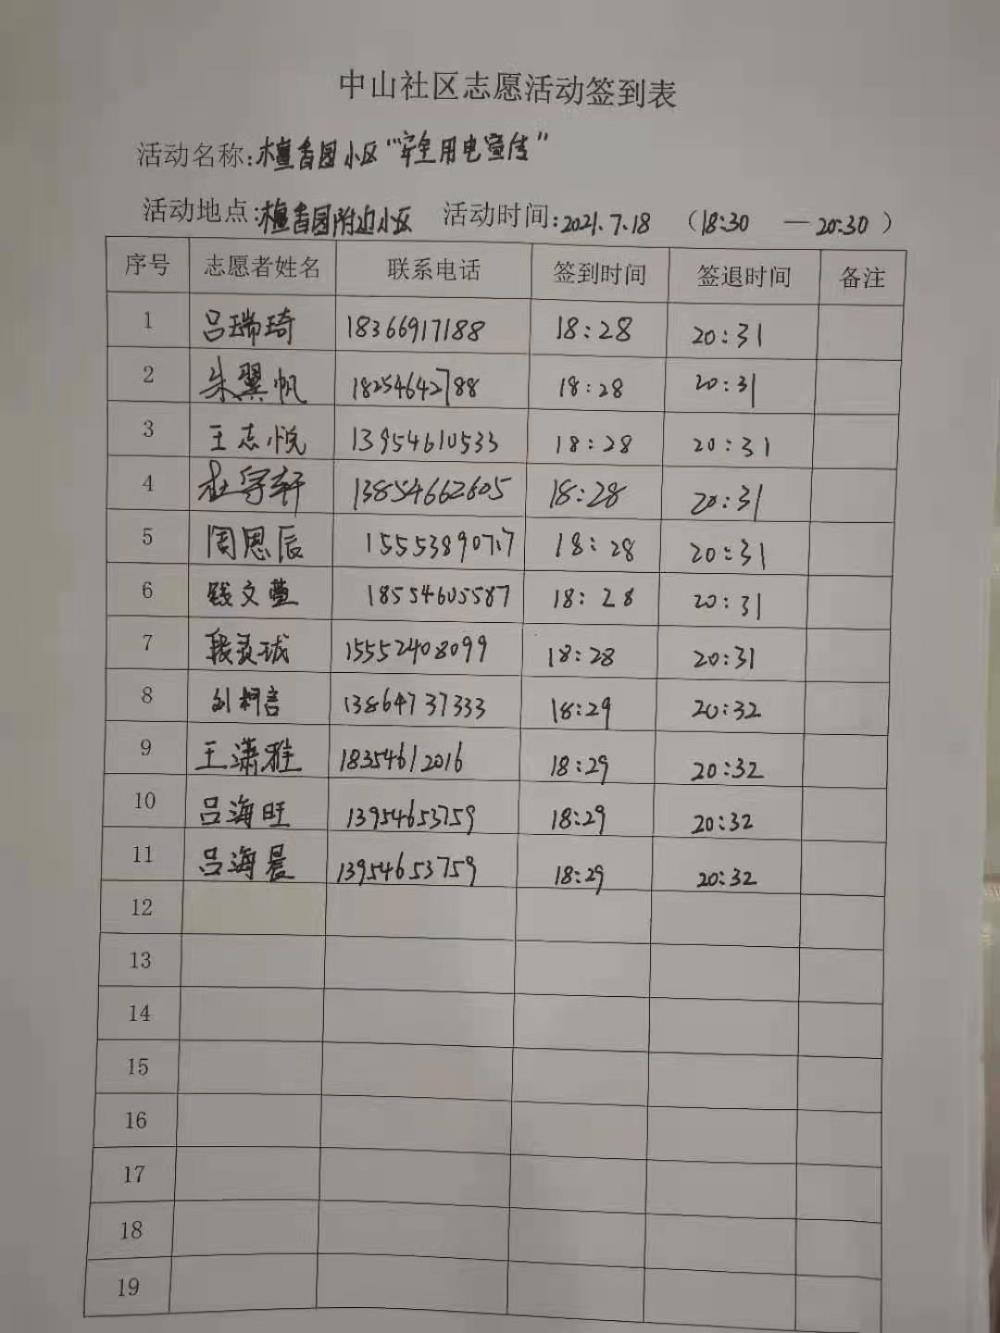 中山社区志愿活动签到表
活动名称:檀香园小区“安全用电宣传”
活动地点:檀香园附近小区 活动时间:2021.7.18 (18:30 — 20:30)
序号 志愿者姓名 联系电话 签到时间 签退时间 备注
1 吕瑞琦 18366917188 18:28 20:31
2 朱翼帆 18254642788 18:28 20:31
3 王志悦 13954610533 18:28 20:31
4 杜宇轩 13854662605 18:28 20:31
5 周恩辰 15553890717 18:28 20:31
6 钱文萱 18554605587 18:28 20:31
7 段灵珑 15552408099 18:28 20:31
8 刘柯言 13864737333 18:29 20:32
9 王潇雅 18354612016 18:29 20:32
10 吕海旺 13954653759 18:29 20:32
11 吕海晨 13954653759 18:29 20:32
12
13
14
15
16
17
18
19